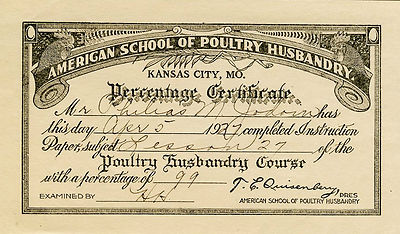 AMERICAN SCHOOL OF POULTRY HUSBANDRY
KANSAS CITY, MO.
Percentage Certificate
Mr has
this day Apr 5 1927 completed Instruction
Paper, subject Lesson 27 of the
Poultry Husbandry Course
with a percentage of 99
T. E. Quisenberry PRES
EXAMINED BY HH AMERICAN SCHOOL OF POULTRY HUSBANDRY